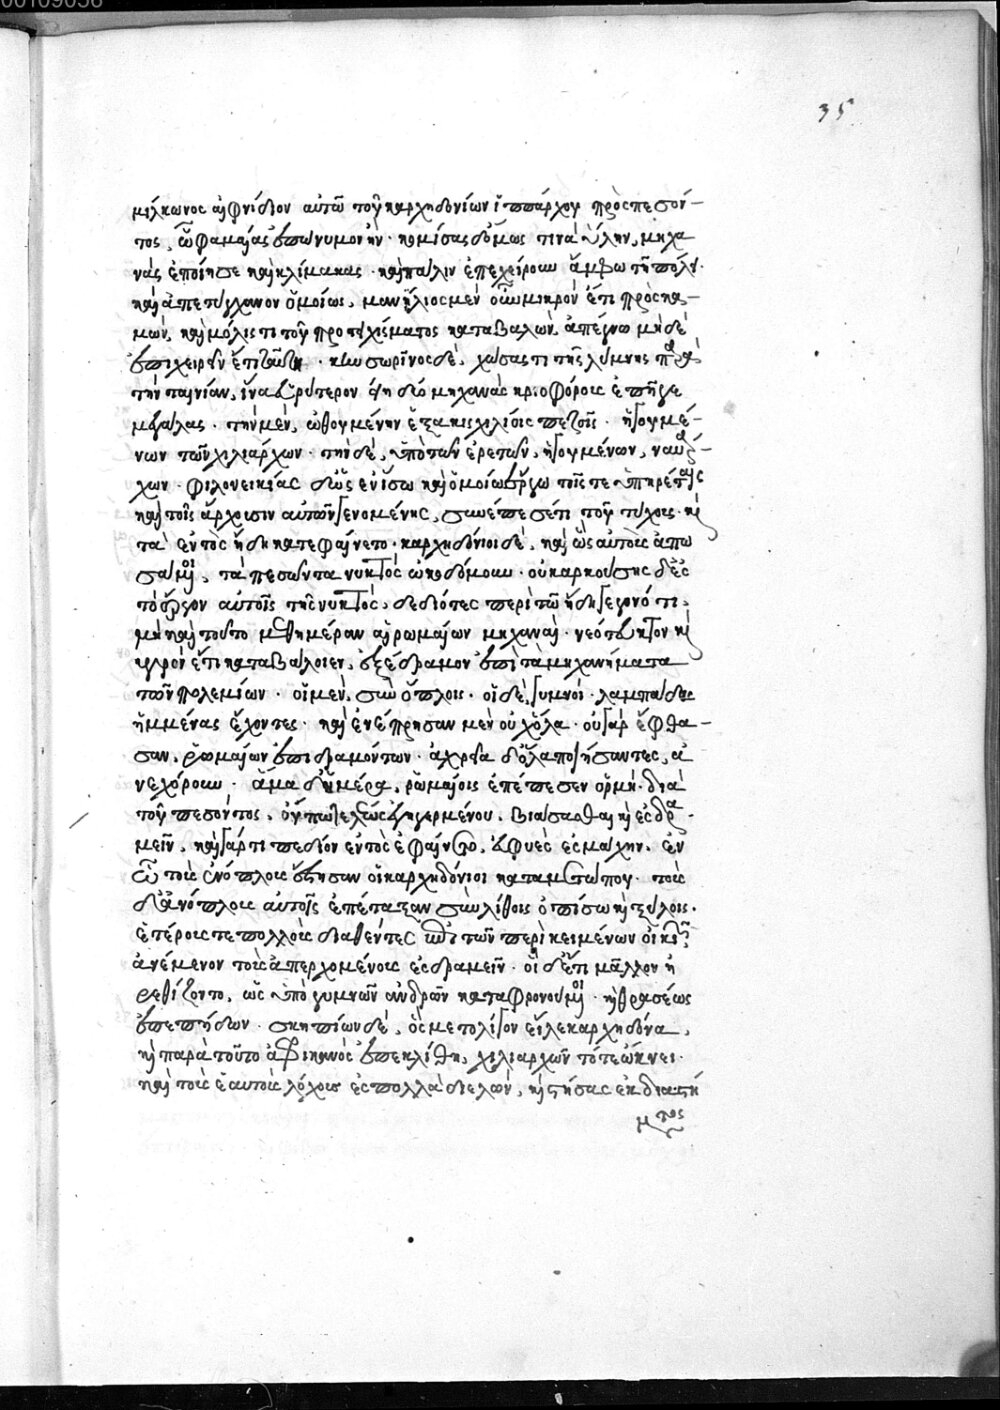 35
μίλκωνος αἰφνίδιον αὐτῶ τοῦ καρχηδονίων ἱππάρχου προσπεσόν-
τος, ὧ φαμαίας ἐπώνυμον ἦν· κομίσας δ' ὅμως τινὰ ὕλην, μηχα
νὰς ἐποίησε καὶ κλίμακας· καὶ πάλιν ἐπεχείρουν ἄμφω τῆ πόλει·
καὶ ἀπετύγχανον ὁμοίως, μανίλιος μὲν οὖν μικρὸν ἔτι προσκα-
μὼν, καὶ μόλις τι τοῦ προτειχίσματος καταβαλὼν, ἀπέγνω μηδὲ
ἐπιχειρεῖν ἔτι ταύτη· κινσωρῖνος δὲ, χώσας τι τῆς λίμνης παρὰ
τὴν ταινίαν, ἵνα εὐρύτερον εἴη δύο μηχανὰς κριοφόρους ἐπῆγε
μεγάλας· τὴν μὲν, ὠθουμένην ἑξακισχιλίοις πεζοῖς· ἡγουμέ-
νων τῶν χιλιάρχων· τὴν δὲ, ὑπὸ τῶν ἐρετῶν, ἡγουμένων, ναυάρ-
χων· φιλονεικίας δ' ὡς ἐν ἴσω καὶ ὁμοίω ἔργω τοῖς τε ὑπηρέταις
καὶ τοῖς ἄρχουσιν αὐτῶν γενομένης, συνέπεσέ τι τοῦ τείχους· καὶ
τὰ ἐντὸς ἤδη κατεφαίνετο· καρχηδόνιοι δὲ, καὶ ὣς αὐτοὺς ἀπω
σάμενοι, τὰ πεσόντα νυκτὸς ὠκοδόμουν· οὐκ ἀρκούσης δ' ἐς
τὸ ἔργον αὐτοῖς τῆς νυκτὸς, δεδιότες περὶ τῶ ἤδη γεγονότι,
μὴ καὶ τοῦτο μεθημέραν αἱ ῥωμαίων μηχαναὶ· νεότευκτον καὶ
ὑγρὸν ἔτι καταβάλοιεν, ἐξέδραμον ἐπὶ τὰ μηχανήματα
τῶν πολεμίων· οἱ μὲν, σὺν ὅπλοις· οἱ δὲ, γυμνοὶ· λαμπάδας
ἡμμένας ἔχοντες· καὶ ἐνέπρησαν μὲν οὐχ ὅλα· οὐ γὰρ ἔφθα-
σαν, ῥωμαίων ἐπιδραμόντων· ἀχρεῖα δ' ὅλα ποιήσαντες, ἀ
νεχώρουν· ἅμα δ' ἡμέρα, ῥωμαίοις ἐπέπεσεν ὁρμὴ· διὰ
τοῦ πεσόντος, οὔπω τελέως ἐγηγερμένου, βιάσασθαι καὶ ἐσδρα
μεῖν, καὶ γάρ τι πεδίον ἐντὸς ἐφαίνετο, εὐφυὲς ἐς μάχην. ἐν
ὧ τοὺς ἐνόπλους ἔστησαν οἱ καρχηδόνιοι κατὰ μέτωπον· τοὺς
δ' ἀνόπλους αὐτοῖς ἐπέταξαν σὺν λίθοις ὀπίσω καὶ ξύλοις·
ἑτέρους τε πολλοὺς διαθέντες ἐπὶ τῶν περικειμένων οἰκιῶν
ἀνέμενον τοὺς ἀπερχομένους ἐσδραμεῖν· οἱ δ' ἔτι μᾶλλον ἠ
ρεθίζοντο, ὡς ὑπὸ γυμνῶν ἀνδρῶν καταφρονούμενοι· καὶ θρασέως
ἐπεπήδων· σκηπίων δὲ, ὃς μετ' ὀλίγον εἷλε καρχηδόνα,
καὶ παρὰ τοῦτο ἀφρικανὸς ἐπεκλήθη, χιλιαρχῶν τότε ὤκνει·
καὶ τοὺς ἑαυτοῦ λόχους ἐς πολλὰ διελὼν, καὶ στήσας ἐκ διαστή
μ τος